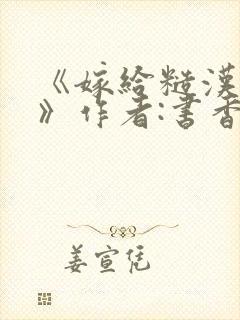 《嫁给糙汉
》作者:书香
姜宣凭